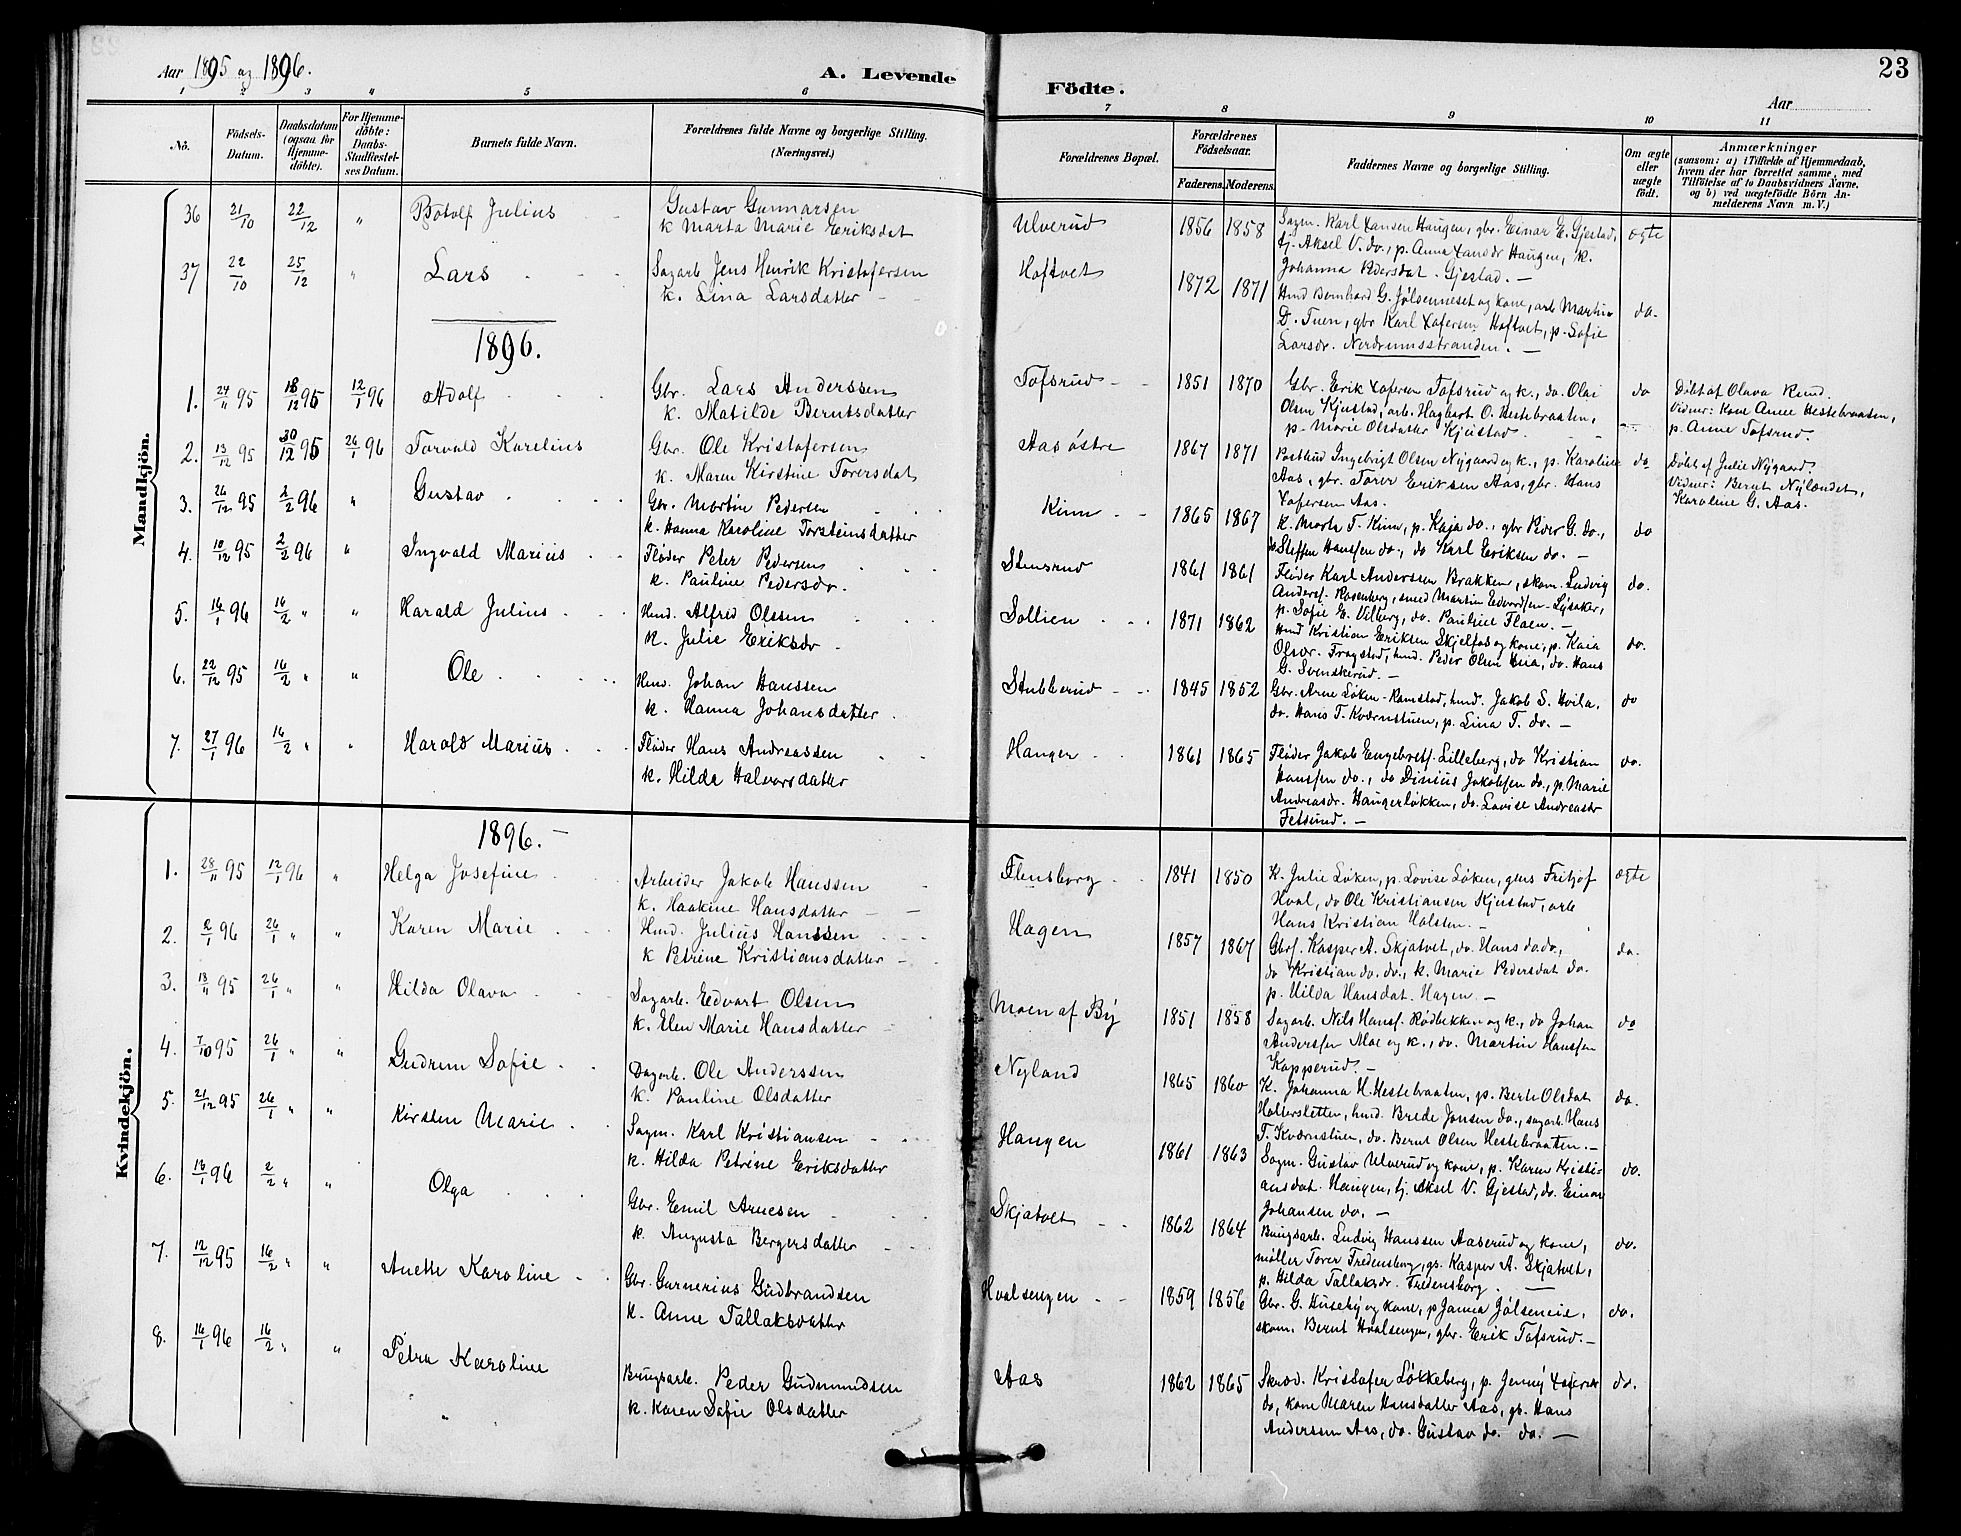 Aar 1895 og 1896.
A. Levende Födte.
23
Aar
1 2 3 4 5 6 7 8 9 10 11
No.
Födsels-Datum.
Daabsdatum (ogsaa for Hjemmedöbte).
For Hjemmedöbte: Daabs-Stadfæstelses Datum.
Barnets fulde Navn.
Forældrenes fulde Navne og borgerlige Stilling. (Næringsvei.)
Forældrenes Bopæl.
Forældrenes Födselsaar.
Faderens. Moderens.
Faddernes Navne og borgerlige Stilling.
Om ægte eller uægte födt.
Anmærkninger
(saasom: a) i Tilfælde af Hjemmedaab,
hvem der har forrettet samme, med
Tilföielse af to Daabsvidners Navne,
og b) ved uægtefödte Börn An-
melderens Navn m. V.)
Mandkjön.
36 21/10 22/12 " Botolf Julius
Gustav Gunnarsen
k Marta Marie Eriksdat
Ulverud 1856 1858
Sagm. Karl Hansen Haugen, gbr. Einar E. Gjestad,
tj. Aksel V. do., p. Anna Hansdr Haugen, k.
Johanna Pedersdat. Gjestad. —
ægte
37 22/10 25/12 " Lars
Sagarb. Jens Henrik Kristofersen
k. Lina Larsdatter
Hoftvet 1872 1871
Hmd Bernhard G. Jølsenneset og kone, arb. Martin
D. Tuen, gbr Karl Xofersen Hoftvet, p. Sofie
Larsdr. Nordrumsstranden. —
do.
1896.
1. 24/11 95 18/12 95 12/1 96 Adolf
Gbr. Lars Anderssen
k. Matilde Berntsdatter
Tofsrud 1851 1870
Gbr. Erik Xofersen Tofsrud og k., do. Olai
Olsen Kjustad, arb. Hagbart O. Hestebraaten,
p. Marie Olsdatter Kjustad.
do
Døbt af Olava Rud.
Vidner: Kone Anne Hestebraaten,
p. Anne Tofsrud.
2. 13/12 95 30/12 95 26/1 96 Torvald Karelius
Gbr. Ole Kristofersen
k. Maren Kirstine Torersdat
Aas østre 1867 1871
Postbud Ingebrigt Olsen Nygaard og k., p. Karoline
Aas, gbr. Torer Eriksen Aas, gbr. Hans
Xofersen Aas.
do
Døbt af Julie Nygaard.
Vidner: Bernt Nylændet,
Karoline G. Aas.
3. 26/12 95 2/2 96 " Gustav
Gbr. Martin Pedersen
k. Hanna Karoline Torsteinsdatter
Kinn 1865 1867
k. Marte T. Kinn, p. Kaja do., gbr Peder G. do.,
do Steffen Hanssen do., do Karl Eriksen do. —
do
4. 10/12 95 2/2 96 " Ingvald Marius
Fløder Peter Pedersen
k. Pauline Pedersdr.
Stensrud 1861 1861
Fløder Karl Anderssen Brakken, skom. Ludvig
Anders. Rosenberg, smed Martin Edvardsen-Lysaker,
p. Sofie E. Vilberg, do. Pauline Flaen. —
do.
5. 16/1 96 16/2 " " Harald Julius
Hmd. Alfred Olssen
k. Julie Eriksdr
Sollien 1871 1862
Hmd Kristian Eriksen Skjelfos og kone, p. Kaia
Olsdr. Frogstad, hmd. Peder Olsen Hvia, do. Hans
G. Svenskerud. —
do.
6. 22/12 95 16/2 " " Ole
Hmd. Johan Hanssen
k. Hanna Johansdatter
Stubberud 1845 1852
Gbr. Arne Løken-Ramstad, hmd. Jakob S. Hvila,
do. Hans T. Kværnstuen, p. Lina T. do. —
do
7. 27/1 96 16/2 " " Harald Marius
Fløder Hans Andreassen
k. Hilda Halvorsdatter
Hanger 1861 1865
Fløder Jakob Engebrets. Lilleberg, do Kristian
Hanssen do., do Dinius Jakobsen do., p. Marie
Andreasdr. Haugerløkken, do. Lovise Andreasdr
Fetsund. —
do.
Kvindekjön.
1896. —
1. 28/11 95 12/1 96 " Helga Josefine
Arbeider Jakob Hanssen
k. Haakine Hansdatter
Flensborg 1841 1850
K. Julie Løken, p. Lovise Løken, gbrs Fritjof
Hval, do Ole Kristiansen Kjustad, arb
Hans Kristian Holsten. —
ægte
2. 2/1 96 26/1 " " Karen Marie
Hmd. Julius Hanssen
k Petrine Kristiansdatter
Hagen 1857 1867
Gbrs. Kasper A. Skjatvet, do. Hans do. do.,
do Kristian do. do., k. Marie Pedersdat do.
p. Hilda Hansdat. Hagen. —
do.
3. 13/11 95 26/1 " " Hilda Olava
Sagarb. Edvart Olsen
k. Elen Marie Hansdatter
Moen af By 1851 1858
Sagarb. Nils Hans. Rødbekken og k., do Johan
Anderssen Moe og k., do. Martin Hanssen
Kapperud. —
do
4. 7/10 95 26/1 " " Gudrun Sofie
Dagarb. Ole Anderssen
k. Pauline Olsdatter
Nyland 1865 1860
K. Johanna H. Hestebraaten, p. Berte Olsdat
Haltersletten, hmd. Brede Jonsen do., sagarb. Hans
T. Kværnstuen, do. Bernt Olsen Hestebraaten. —
do.
5. 21/12 95 26/1 " " Kirsten Marie
Sagm. Karl Kristiansen
k. Hilda Petrine Eriksdatter
Haugen 1861 1863
Sagm. Gustav Ulverud og kone, p. Karen Kristi-
ansdat. Haugen, tj. Aksel V. Gjestad, do. Einar
Johansen do. —
do.
6. 16/1 96 2/2 " " Olga
Gbr. Emil Arnesen
k. Augusta Bergersdatter
Skjatvet 1862 1864
Brugsarb. Ludvig Hanssen Aaserud og kone,
møller Torer Fredensborg, gs. Kasper A. Skjatvet,
p. Hilda Tallaksdr. Fredensborg. —
do.
7. 12/12 95 16/2 " " Anette Karoline
Gbr. Gunnerius Gudbrandsen
k. Anne Tallaksdatter
Hvalsengen 1859 1856
Gbr. G. Huseby og kone, p Janna Jølseneie,
skom. Bernt Hvalsengen, gbr. Erik Tofsrud. —
do.
8. 16/1 96 16/2 " " Petra Karoline
Brugsarb. Peder Gudmundsen
k. Karen Sofie Olsdatter
Aas 1862 1865
Skræd. Kristofer Løkkeberg, p. Jenny Xofersdr
do, kone Maren Hansdatter Aas, gs. Hans
Anderssen Aas, do. Gustav do. do. —
do.